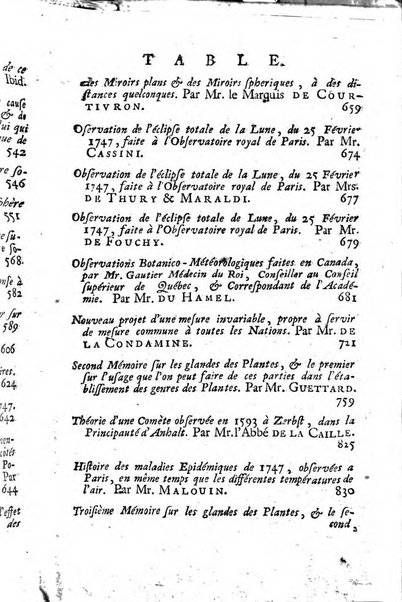 de ce
Ibid.
cause
& du
ui qui
que de
542
re so-
546
phère
551
re su-
re so-
568.
nse à
582
r sur
589
606
ires.
624
747.
642
en-
cité
Po-
Par
644
l'effet
des
TABLE.
des Miroirs plans & des Miroirs spheriques, à des di-
stances quelconques. Par Mr. le Marquis DE COUR-
TIVRON. 659
Oservation de l'éclipse totale de la Lune, du 25 Février
1747, faite à l'Observatoire royal de Paris. Par Mr.
CASSINI. 674
Observation de l'éclipse totale de la Lune, du 25 Février
1747, faite à l'Observatoire royal de Paris. Par Mrs.
DE THURY & MARALDI. 677
Observation de l'éclipse totale de la Lune, du 25 Février
1747, faite à l'Observatoire royal de Paris. Par Mr.
DE FOUCHY. 679
Observations Botanico-Météorologiques faites en Canada,
par Mr. Gautier Médecin du Roi, Conseiller au Conseil
supérieur de Québec, & Correspondant de l'Acadé-
mie. Par Mr. DU HAMEL. 681
Nouveau projet d'une mesure invariable, propre à servir
de mesure commune à toutes les Nations. Par Mr. DE
LA CONDAMINE. 721
Second Mémoire sur les glandes des Plantes, & le premier
sur l'usage que l'on peut faire de ces parties dans l'éta-
blissement des genres des Plantes. Par Mr. GUETTARD.
759
Théorie d'une Comète observée en 1593 à Zerbst, dans la
Principauté d'Anhalt. Par Mr. l'Abbé DE LA CAILLE.
825
Histoire des maladies Epidémiques de 1747, observées a
Paris, en même temps que les différentes températures de
l'air. Par Mr. MALOUIN. 830
Troisième Mémoire sur les glandes des Plantes, & le se-
cond,